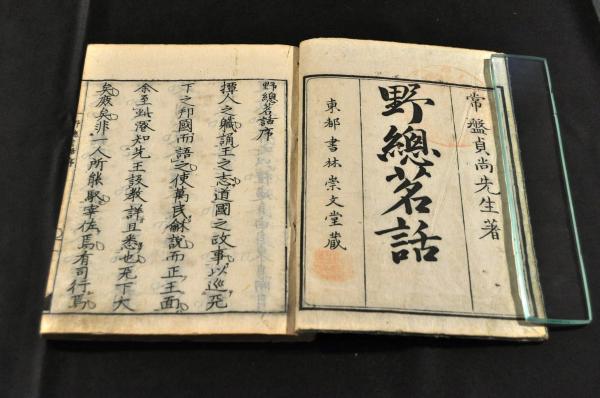 常盤貞尚先生著
野總茗話
東都書林崇文堂蔵
野總茗話序
撢人之職誦王之志道國之故事以巡兲
下之邦國而語之使萬民龢說而正王面
余至茲 知先王設教詳且悉也兲下大
矣廣矣非一人所能 宰佐焉有司行焉